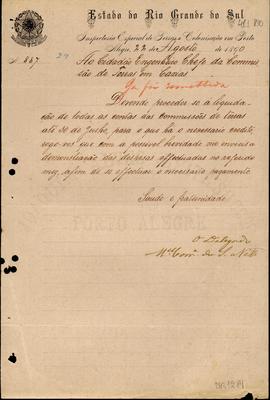 Estado do Rio Grande do Sul
Inspectoria Especial de Terras e Colonisação em Porto
Alegre, 22 de Agosto de 1890
N. 867 Ao Cidadão Engenheiro Chefe da Commis
são de Terras em Caxias
Ja foi remettida
Devendo proceder se a liquida
ção de todas as contas das Commissões de terras
até 30 de Junho, para o que ha o necessario credito,
rogo vos que com a possivel brevidade me envieis a
demonstração das despezas effectuadas no referido
mez, afim de se effectuar o necessario pagamento.
Saude e fraternidade
O Delegado